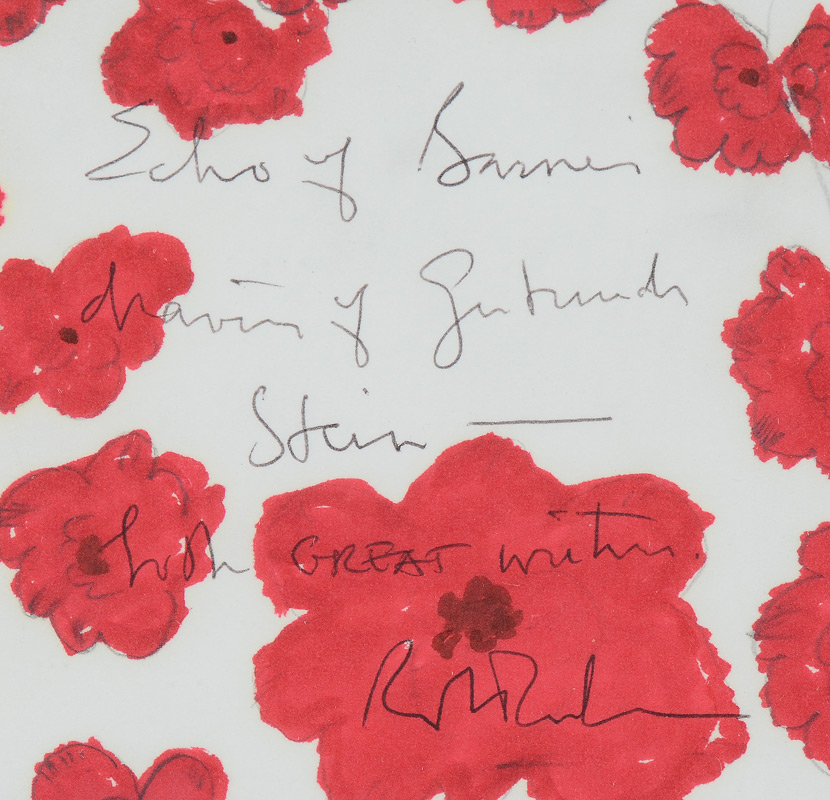 Echo of Barnes'
drawing of Gertrude
Stein —
both GREAT writers.